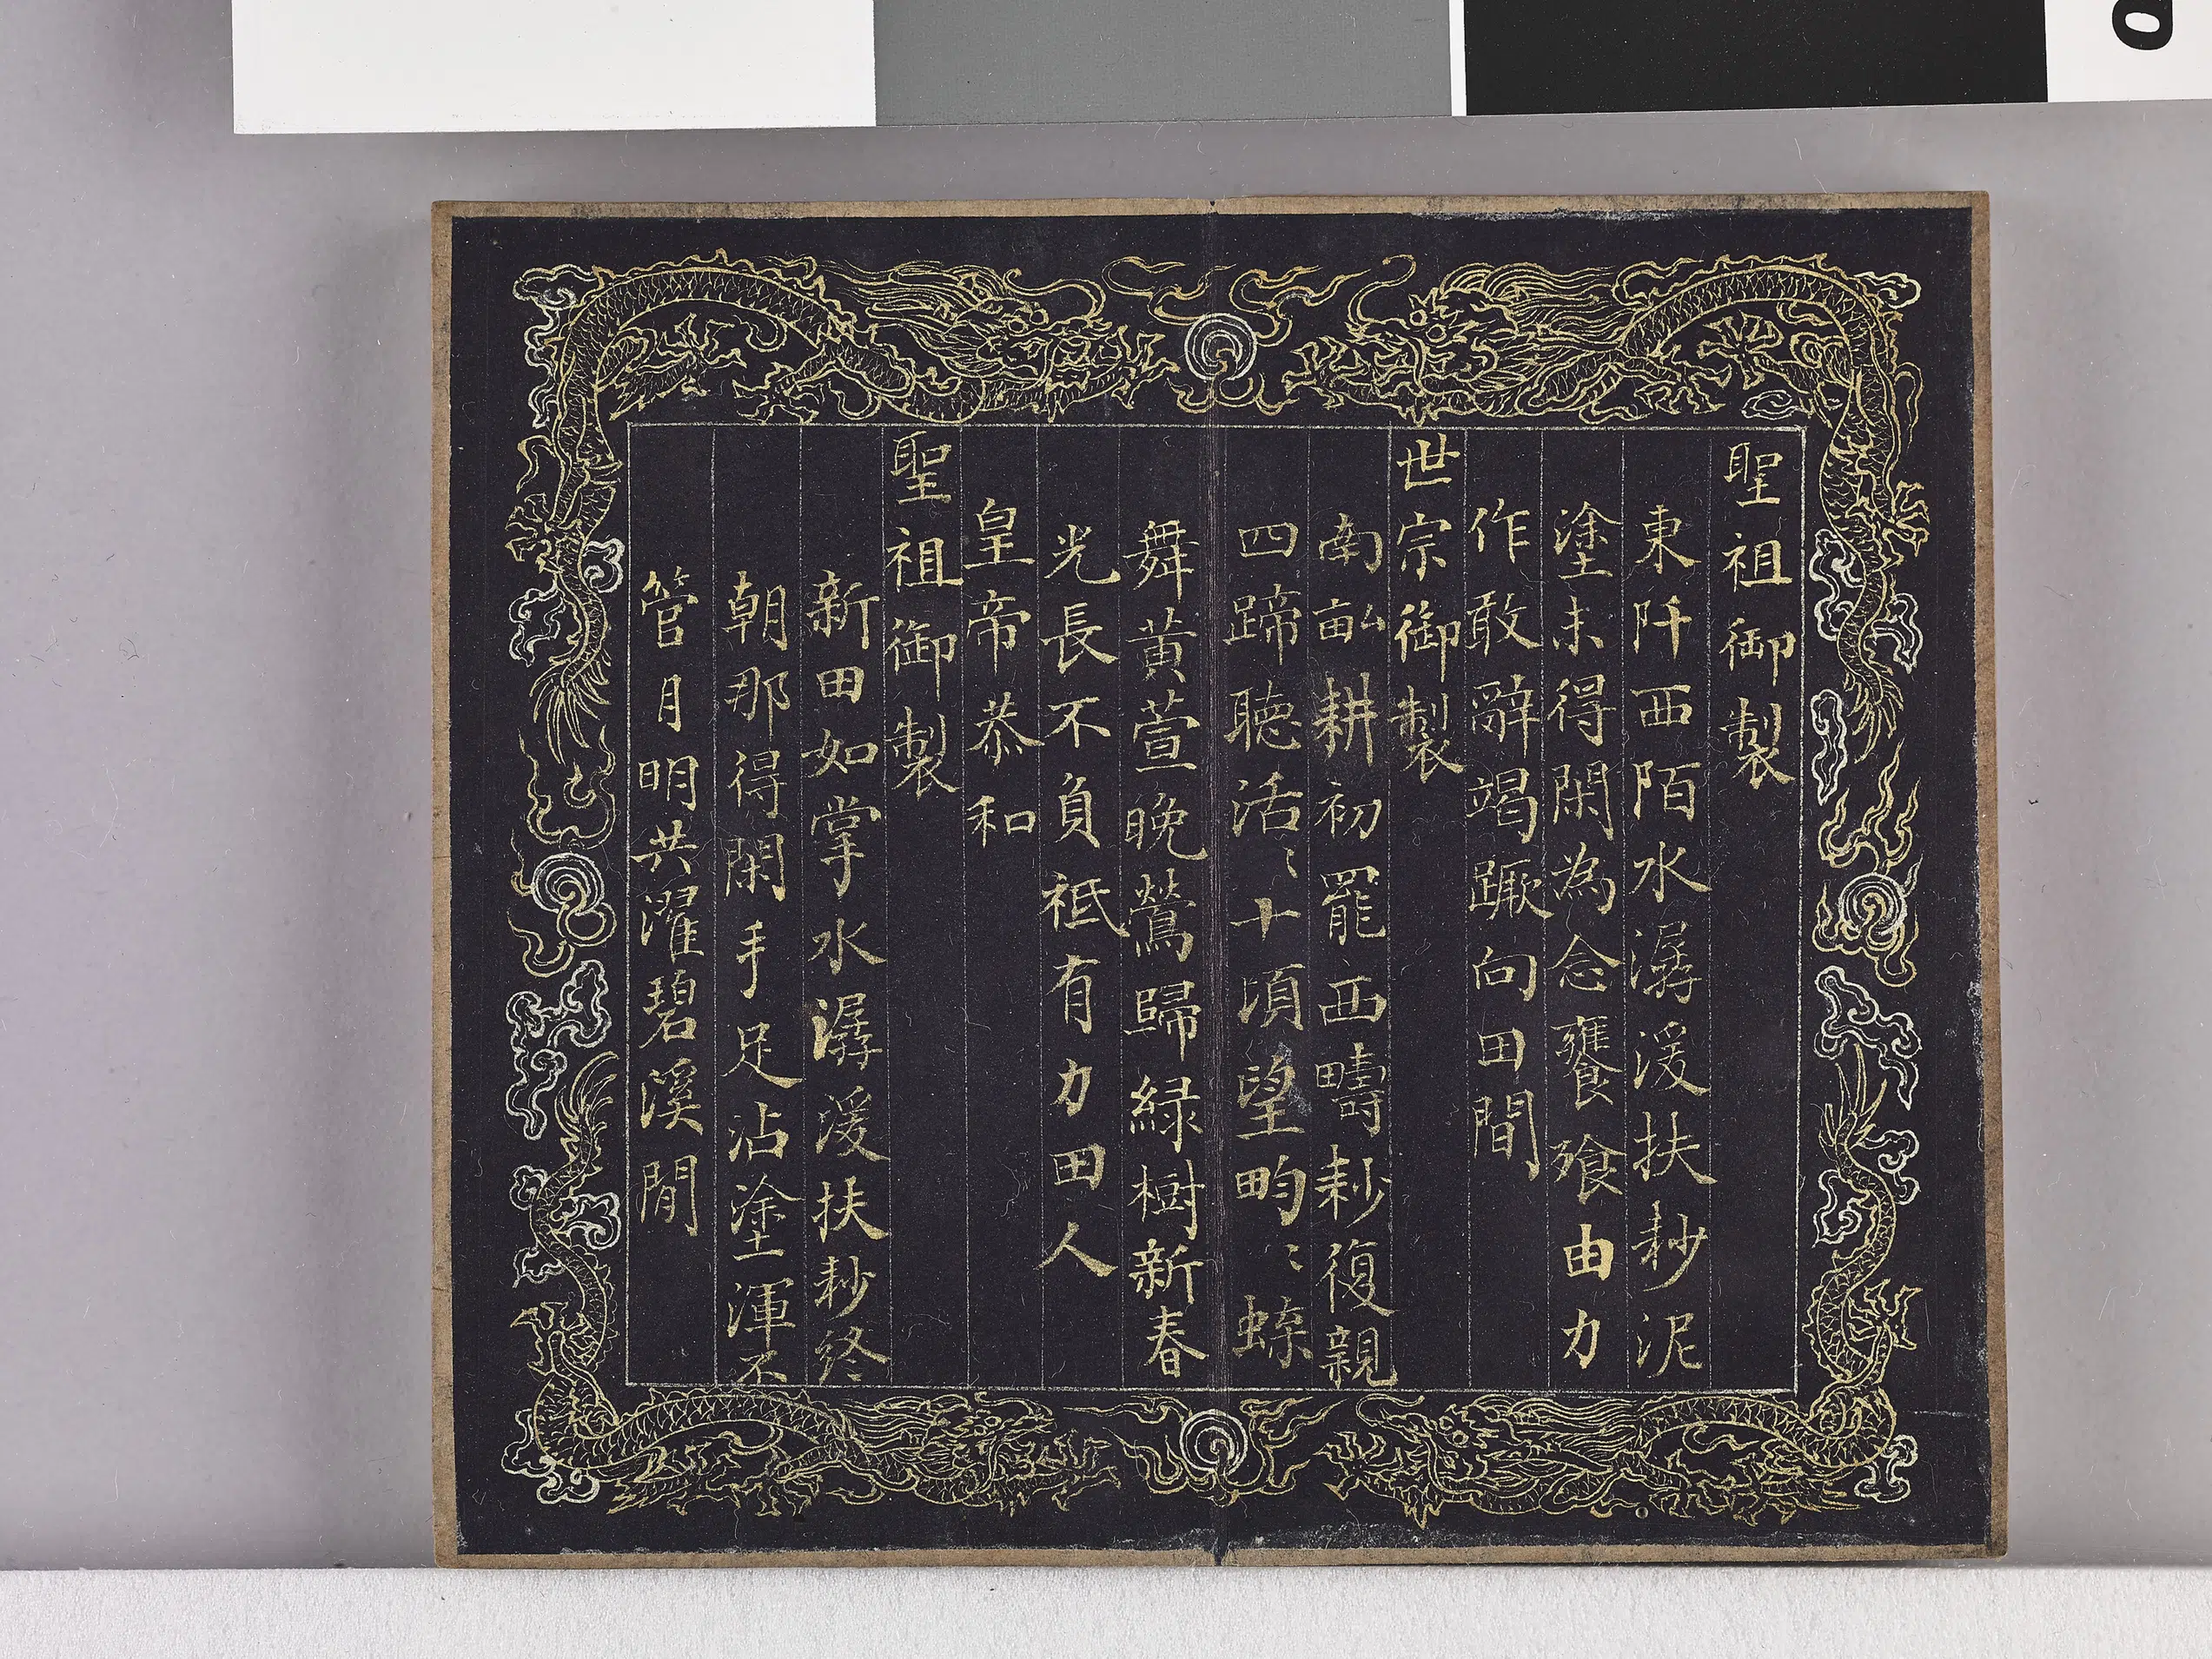 聖祖御製
東阡西陌水潺湲扶耖泥
塗未得閑為念饔飱由力
作敢辭竭蹶向田間
世宗御製
南畝耕初罷西疇耖復親
四蹄聽活〻十頃望畇〻蝶
舞黃萱晚鶯歸綠樹新春
光長不負祇有力田人
皇帝恭和
聖祖御製
新田如掌水潺湲扶耖終
朝那得閑手足沾塗渾不
管月明共濯碧溪間